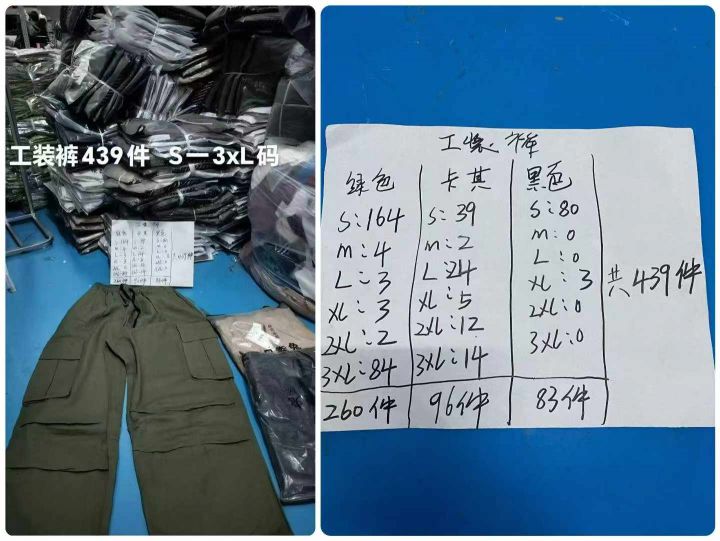 工装裤439件 S—3xL码
工装裤
绿色 卡其 黑色
S:164 S:39 S:80
M:4 M:2 M:0
L:3 L:24 L:0
XL:3 XL:5 XL:3
2XL:2 2XL:12 2XL:0
3XL:84 3XL:14 3XL:0
260件 96件 83件
共439件